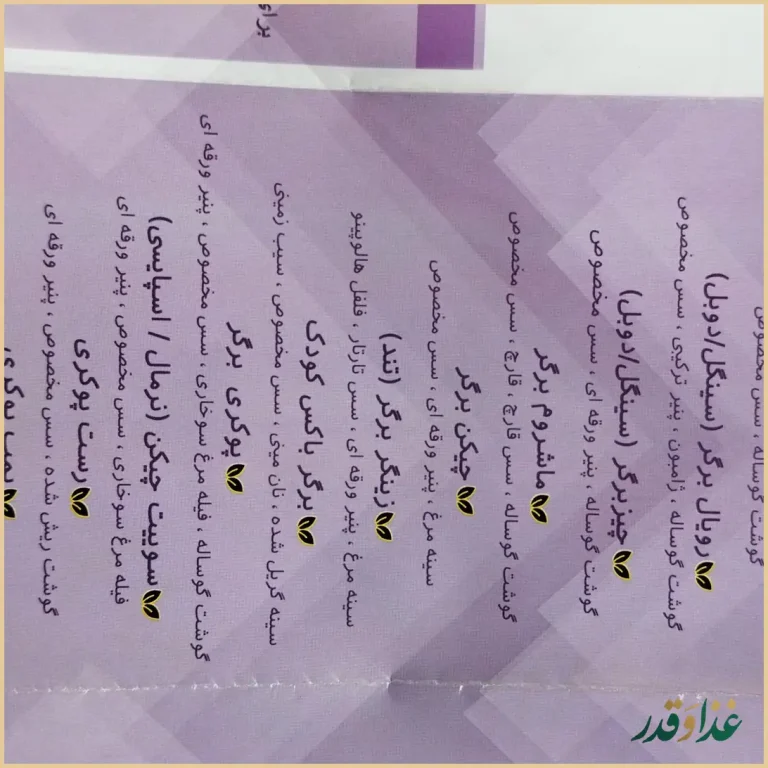 گوشت گوساله ، سس مخصوص
رویال برگر (سینگل/دوبل)
گوشت گوساله ، ژامبون ، پنیر ترکیبی ، سس مخصوص
چیزبرگر (سینگل/دوبل)
گوشت گوساله ، پنیر ورقه ای ، سس مخصوص
ماشروم برگر
گوشت گوساله ، سس قارچ ، قارچ ، سس مخصوص
چیکن برگر
سینه مرغ ، پنیر ورقه ای ، سس مخصوص
زینگر برگر (تند)
سینه مرغ ، پنیر ورقه ای ، سس تارتار ، فلفل هالوپینو
برگر باکس کودک
سینه گریل شده ، نان مینی ، سس مخصوص ، سیب زمینی
پوکری برگر
گوشت گوساله ، فیله مرغ سوخاری ، سس مخصوص ، پنیر ورقه ای
سوییت چیکن (نرمال / اسپایسی)
فیله مرغ سوخاری ، سس مخصوص ، پنیر ورقه ای
رست پوکری
گوشت ریش شده ، سس مخصوص ، پنیر ورقه ای
برای
غذا و قدر